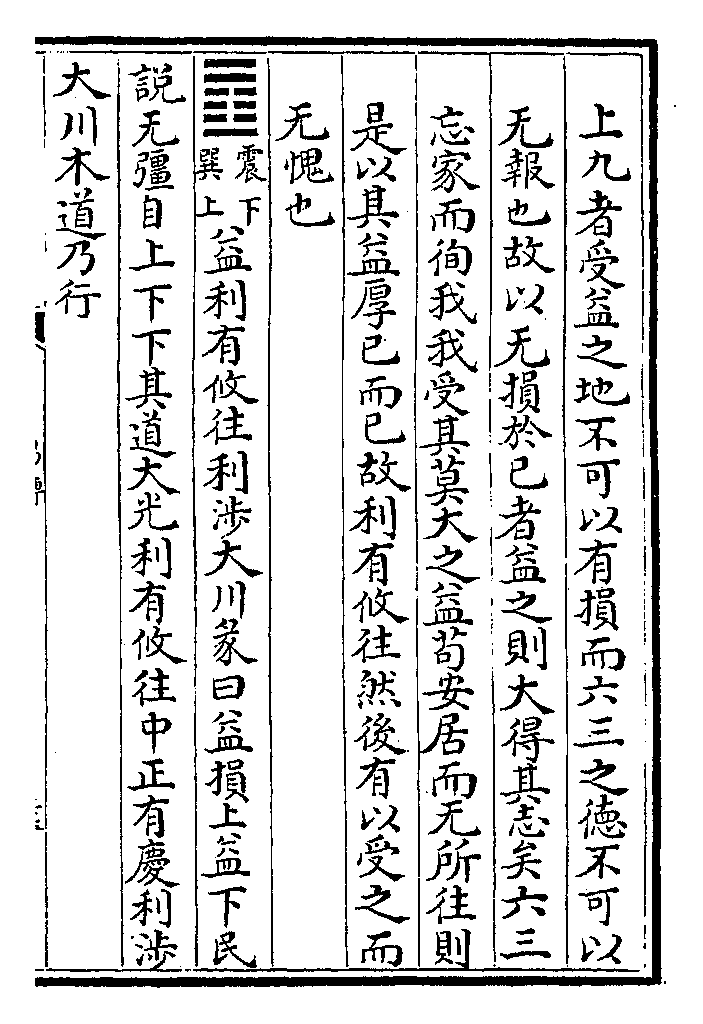 上九者受益之地不可以有損而六三之德不可以
无報也故以无損於己者益之則大得其志矣六三
忘家而徇我我受其莫大之益苟安居而无所往則
是以其益厚己而已故利有攸往然後有以受之而
无愧也
䷩震下巽上益利有攸往利涉大川彖曰益損上益下民
說无彊自上下下其道大光利有攸往中正有慶利涉
大川木道乃行